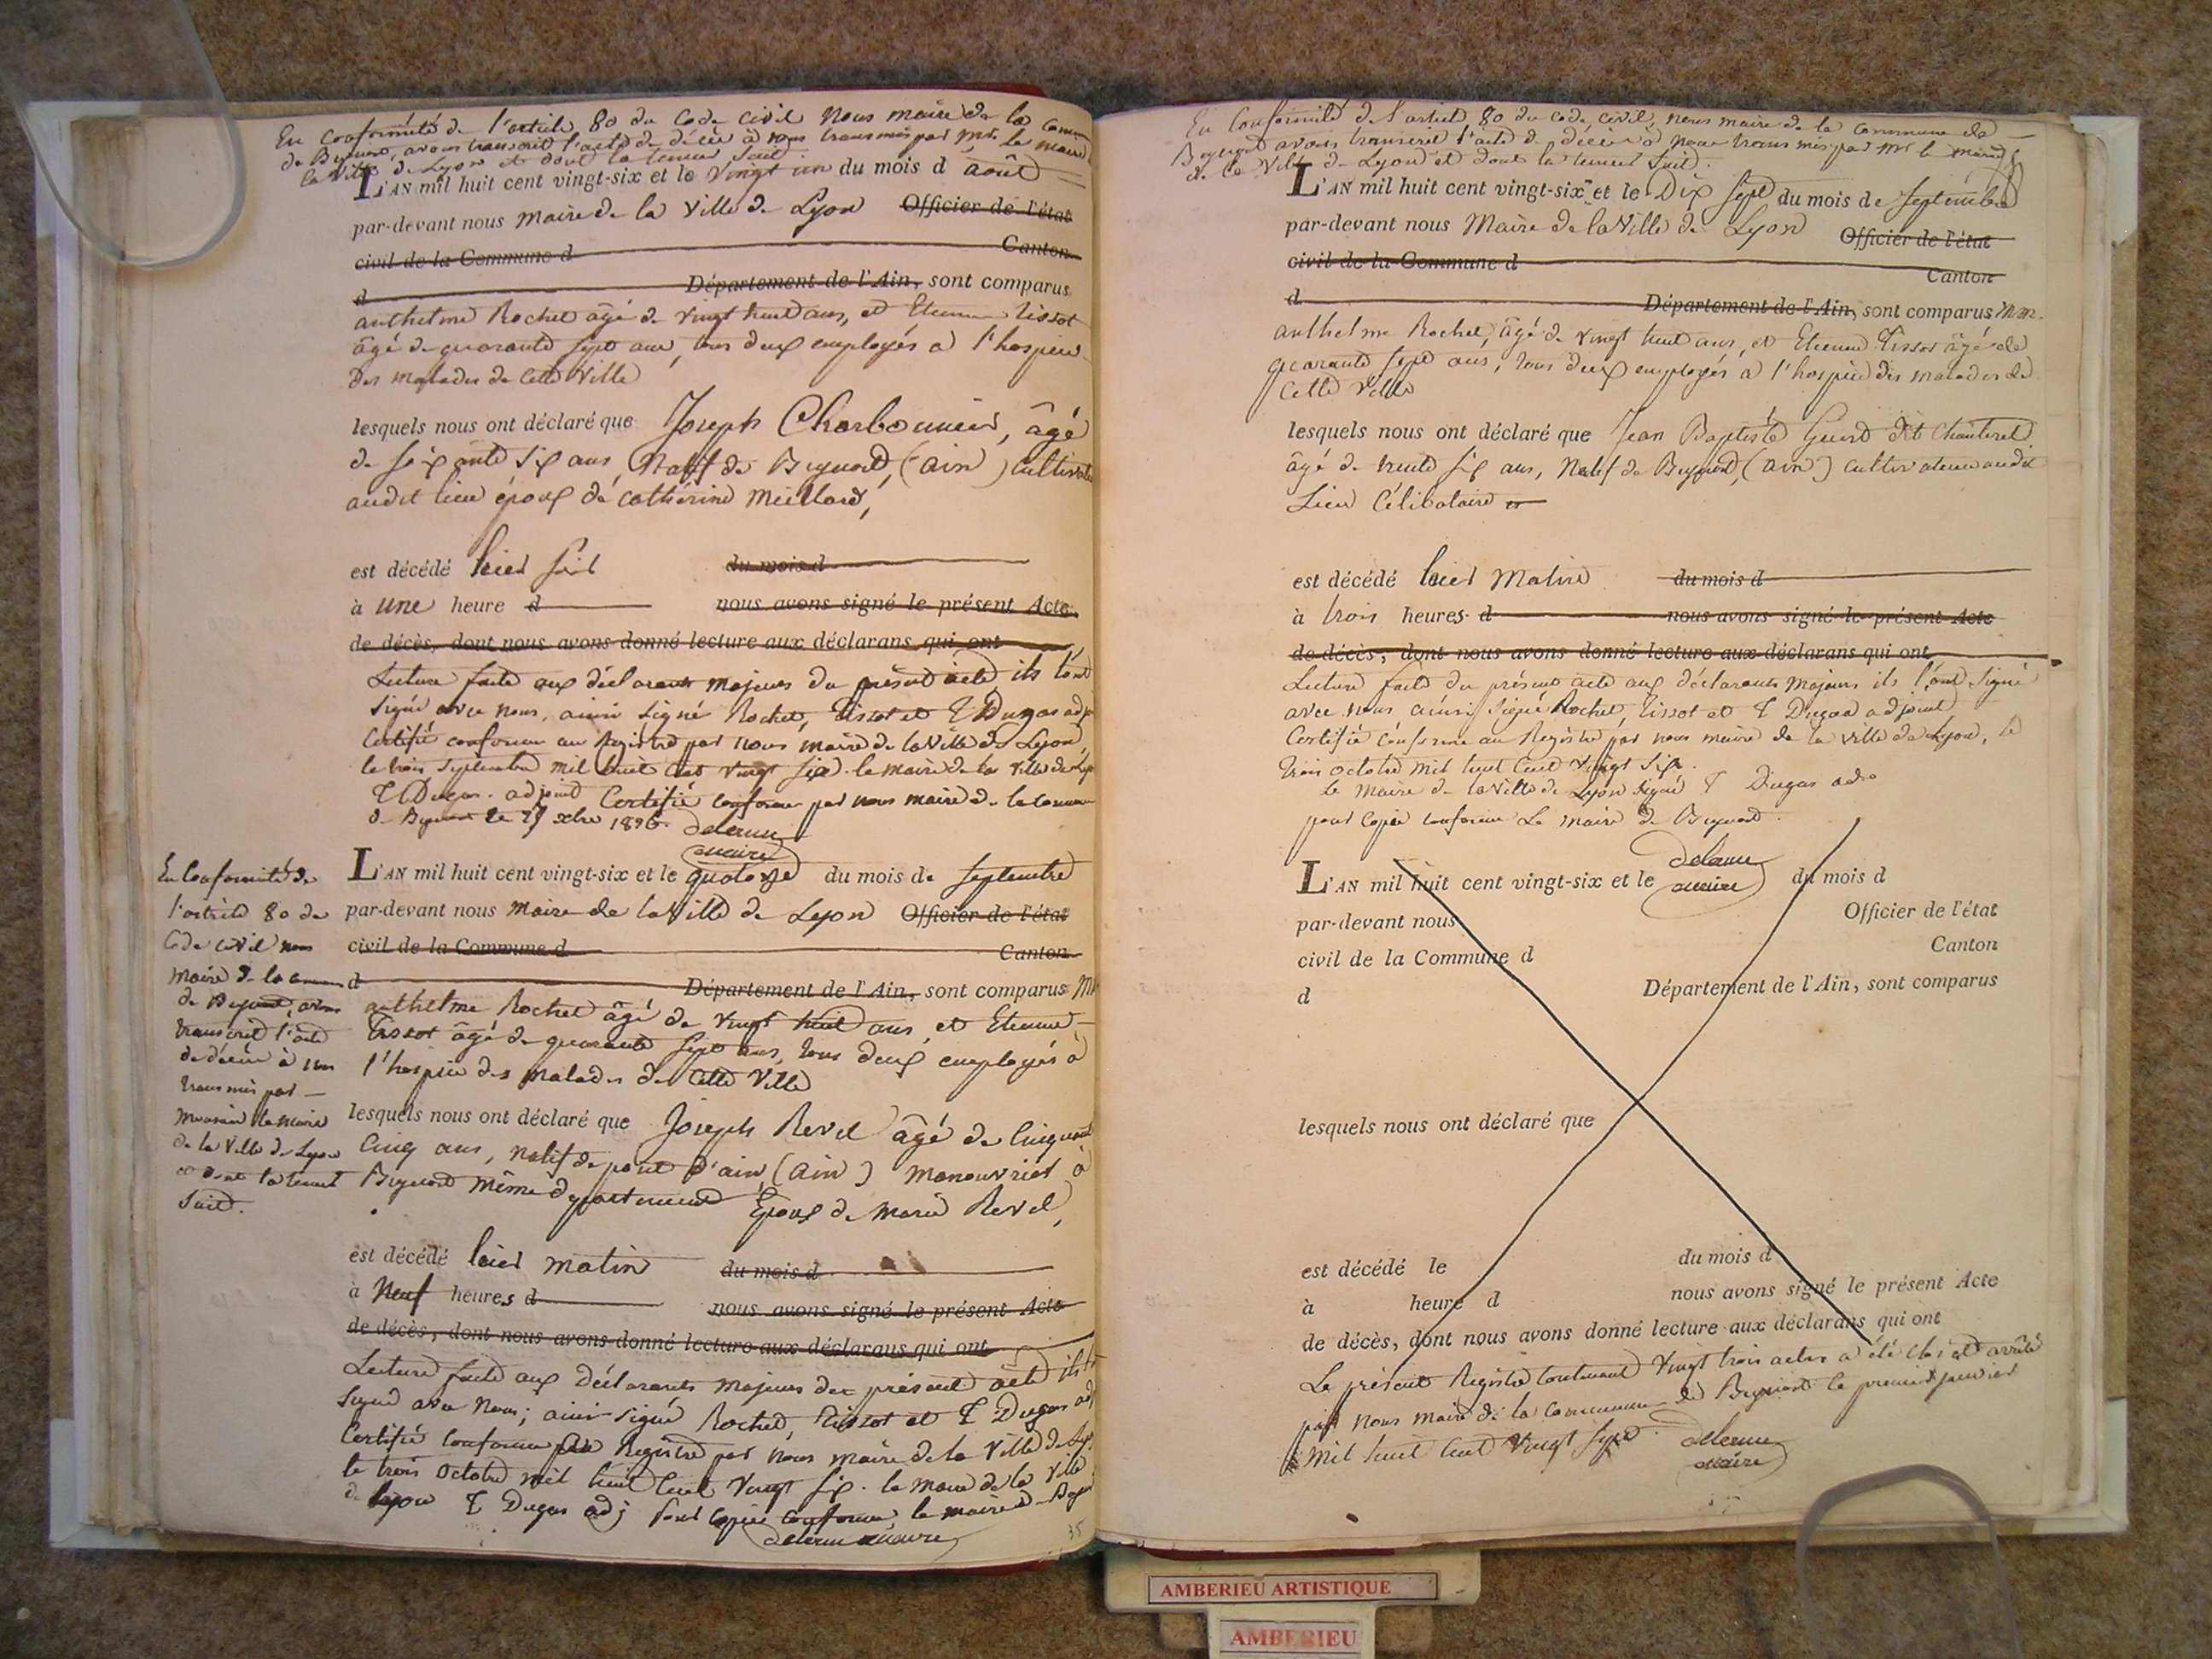 En Conformité de l'article 80 du Code civil Nous maire de la Commune
de Beynost, avons transcrit l'acte de décès à nous transmis par Mr. le maire
la Ville de Lyon et dont la teneur suit
L'AN mil huit cent vingt-six et le vingt un du mois d août
par-devant nous maire de la Ville de Lyon Officier de l'état
civil de la Commune d Canton
d Département de l'Ain, sont comparus
anthelme Rochet âgé de vingt huit ans, et Etienne Tissot
âgé de quarante sept ans, tous deux employés à l'hospice
des malades de cette Ville
lesquels nous ont déclaré que Joseph Charbonnier, âgé
de soixante six ans, Natif de Beynost, (ain) cultivateur
audit lieu époux de Catherine Meillard,
est décédé hier soir du mois d
à une heure d nous avons signé le présent Acte
de décès, dont nous avons donné lecture aux déclarans qui ont
Lecture faite aux déclarants majeurs du présent acte ils l'ont
signé avec nous, ainsi signé Rochet, Tissot et T Dugas adj
Certifié conforme au Registre par nous maire de la Ville de Lyon,
le trois septembre mil huit cent vingt six. le maire de la Ville de Lyon
T Dugas. adjoint Certifié conforme par nous maire de la Commune
de Beynost le 27 xbre 1826. Delerue
maire
L'AN mil huit cent vingt-six et le quatorze du mois de septembre
par-devant nous maire de la Ville de Lyon Officier de l'état
civil de la Commune d Canton
d Département de l'Ain, sont comparus MM
anthelme Rochet âgé de vingt huit ans, et Etienne
Tissot âgé de quarante sept ans, tous deux employés à
l'hospice des malades de cette Ville
lesquels nous ont déclaré que Joseph Revel âgé de Cinquante
Cinq ans, natif de pont d'ain, (ain) manouvrier à
Beynost même département Epoux de marie Revel,
est décédé hier matin du mois d
à Neuf heures d nous avons signé le présent Acte
de décès, dont nous avons donné lecture aux déclarans qui ont
Lecture faite aux déclarants majeurs du présent acte ils
signé avec nous; ainsi signé Rochet, Tissot et T Dugas adj
Certifié conforme au Registre par nous maire de la Ville de Lyon
le trois octobre mil huit cent vingt six. le maire de la Ville
de Lyon T Dugas adj pour copie conforme, le maire de Beynost
Delerue maire
35
En Conformité de
l'article 80 du
Code civil nous
maire de la commune
de Beynost, avons
transcrit l'acte
de décès à nous
transmis par
monsieur le maire
de la Ville de Lyon
et dont la teneur
suit.
En Conformité de l'article 80 du code civil, nous maire de la commune de
Beynost avons transcrit l'acte de décès à nous transmis par Mr le maire
de la Ville de Lyon et dont la teneur suit.
L'AN mil huit cent vingt-six et le Dix sept du mois de septembre
par-devant nous Maire de la Ville de Lyon Officier de l'état
civil de la Commune d
Canton
d Département de l'Ain, sont comparus MM.
anthelme Rochet, âgé de vingt huit ans, et Etienne Tissot âgé de
quarante sept ans, tous deux employés à l'hospice des malades de
cette Ville
lesquels nous ont déclaré que Jean Baptiste dit Chanterel
âgé de trente six ans, Natif de Beynost, (ain) cultivateur audit
Lieu Célibataire
est décédé hier matin du mois d
à trois heures d nous avons signé le présent Acte
de décès, dont nous avons donné lecture aux déclarans qui ont
Lecture faite du présent acte aux déclarants majeurs ils l'ont signé
avec nous ainsi signé Rochet, Tissot et T Dugas adjoint
Certifié conforme au Registre par nous maire de la Ville de Lyon, le
trois octobre mil huit cent vingt six.
Le Maire de la Ville de Lyon signé T Dugas adj
pour copie conforme Le maire de Beynost.
Delerue
maire
L'AN mil huit cent vingt-six et le du mois d
par-devant nous Officier de l'état
civil de la Commune d Canton
d Département de l'Ain, sont comparus
lesquels nous ont déclaré que
est décédé le du mois d
à heure d nous avons signé le présent Acte
de décès, dont nous avons donné lecture aux déclarans qui ont
Le présent Registre contenant vingt trois actes a été clos et arrêté
par nous maire de la commune de Beynost le premier janvier
mil huit cent vingt sept. Delerue
maire
AMBERIEU ARTISTIQUE
AMBERIEU